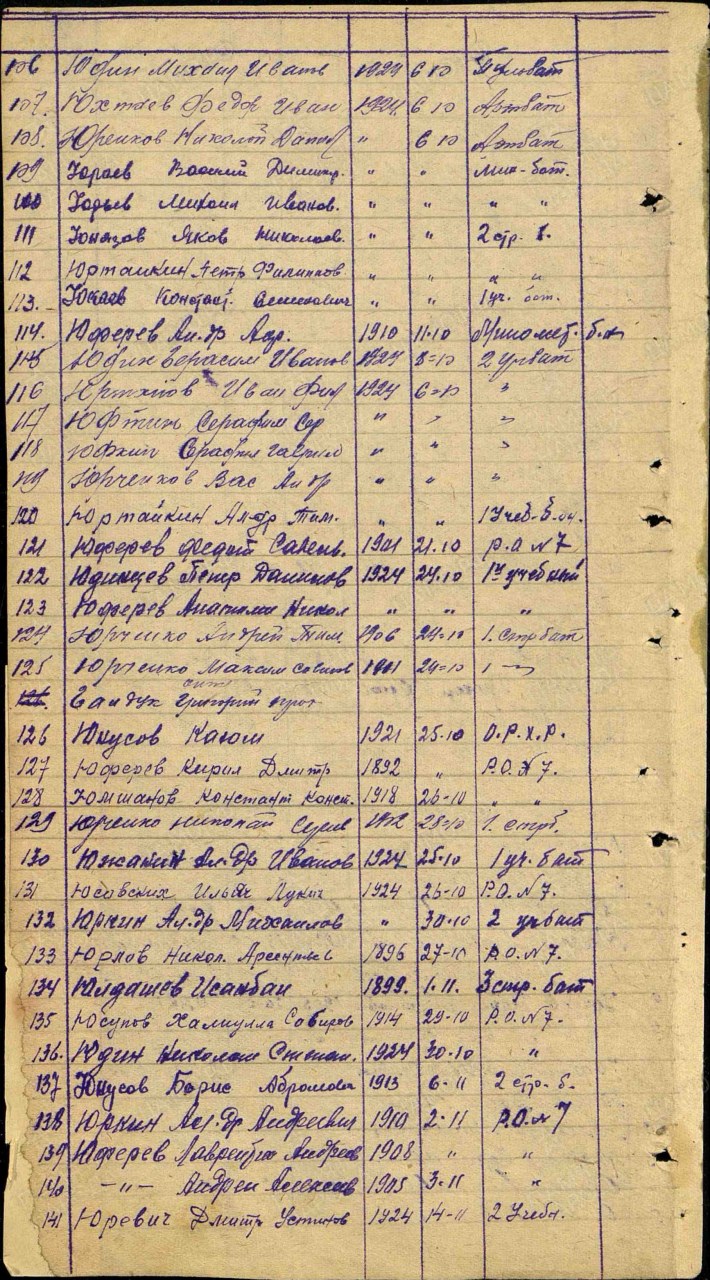 106 Юдин Михаил Иванв 1924 6 10
107. Юхтаев Федор Иван 1924 6 10 Артбат
108. Юренков Николай Данил " 6 10 Артбат
109 Юраев Василий Димитр. " " Мин-бат.
110 Юдьев Михаил Иванов. " " " "
111 Юнязов Яков Николаев. " " 2 стр. б.
112 Юртайкин Петр Филиппов " " " "
113. Юкаев Констант. Семенович " " 1 уч. бат.
114. Юферев Ал-др Адр. 1910 11.10 Миномет. б-н
115 Юдин Герасим Иванов 1924 8=10 2 учбат
116 Иван Фил 1924 6=10 "
117 Юфтин Серафим Сер " " "
118 Юфкин Серафим Гаврил " " "
119 Юрченков Вас Андр " " "
120 Юртайкин Ал-др Тим. " " 1 Учеб-б-он.
121 Юферев Федот Савель. 1901 21.10 р.о N 7
122 Юдинцев Петр Данилов 1924 24.10 1й учебный
123 Юферев Анатолий Никол " " "
124 Юрченко Андрей Тим. 1906 24=10 1. стрбат
125 Юрченко Максим 1901 24=10 1 —"—
Гайдук Григорий
126 Юнусов Каюм 1921 25.10 О.Р.Х.Р.
127 Юферев Кирил Дмитр 1892 " Р.О. N 7.
128 Юмшанов Констант Конст. 1918 26-10 " "
129 Юрченко Николай 28=10 1. стрб.
130 Южанин Ал-др Иванов 1924 25.10 1 уч. бат
131 Юсовских Илья Лукич 1924 26-10 Р.О. N 7.
132 Юркин Ал-др Михайлов " 30.10 2 учбат
133 Юрлов Никол. Арсентьев 1896 27-10 Р.О. N 7.
134 Юлдашев Исанбай 1899. 1.11. 3 стр. бат
135 Юсупов Халиулла Сабиров 1914 29-10 Р.О. N 7.
136. Юдин Николай Степан. 1924 30.10 "
137 Юнусов Борис Абрамович 1913 6-11 2 стр. б.
138 Юркин Ал-др Андреевич 1910 2-11 Р.О. N 7
139 Юферев Лаврентий Андреев 1908 " "
140 —"— Андрей Алексеев 1905 3-11 "
141 Юревич Дмитр Устинов 1924 14-11 2 Учебн.